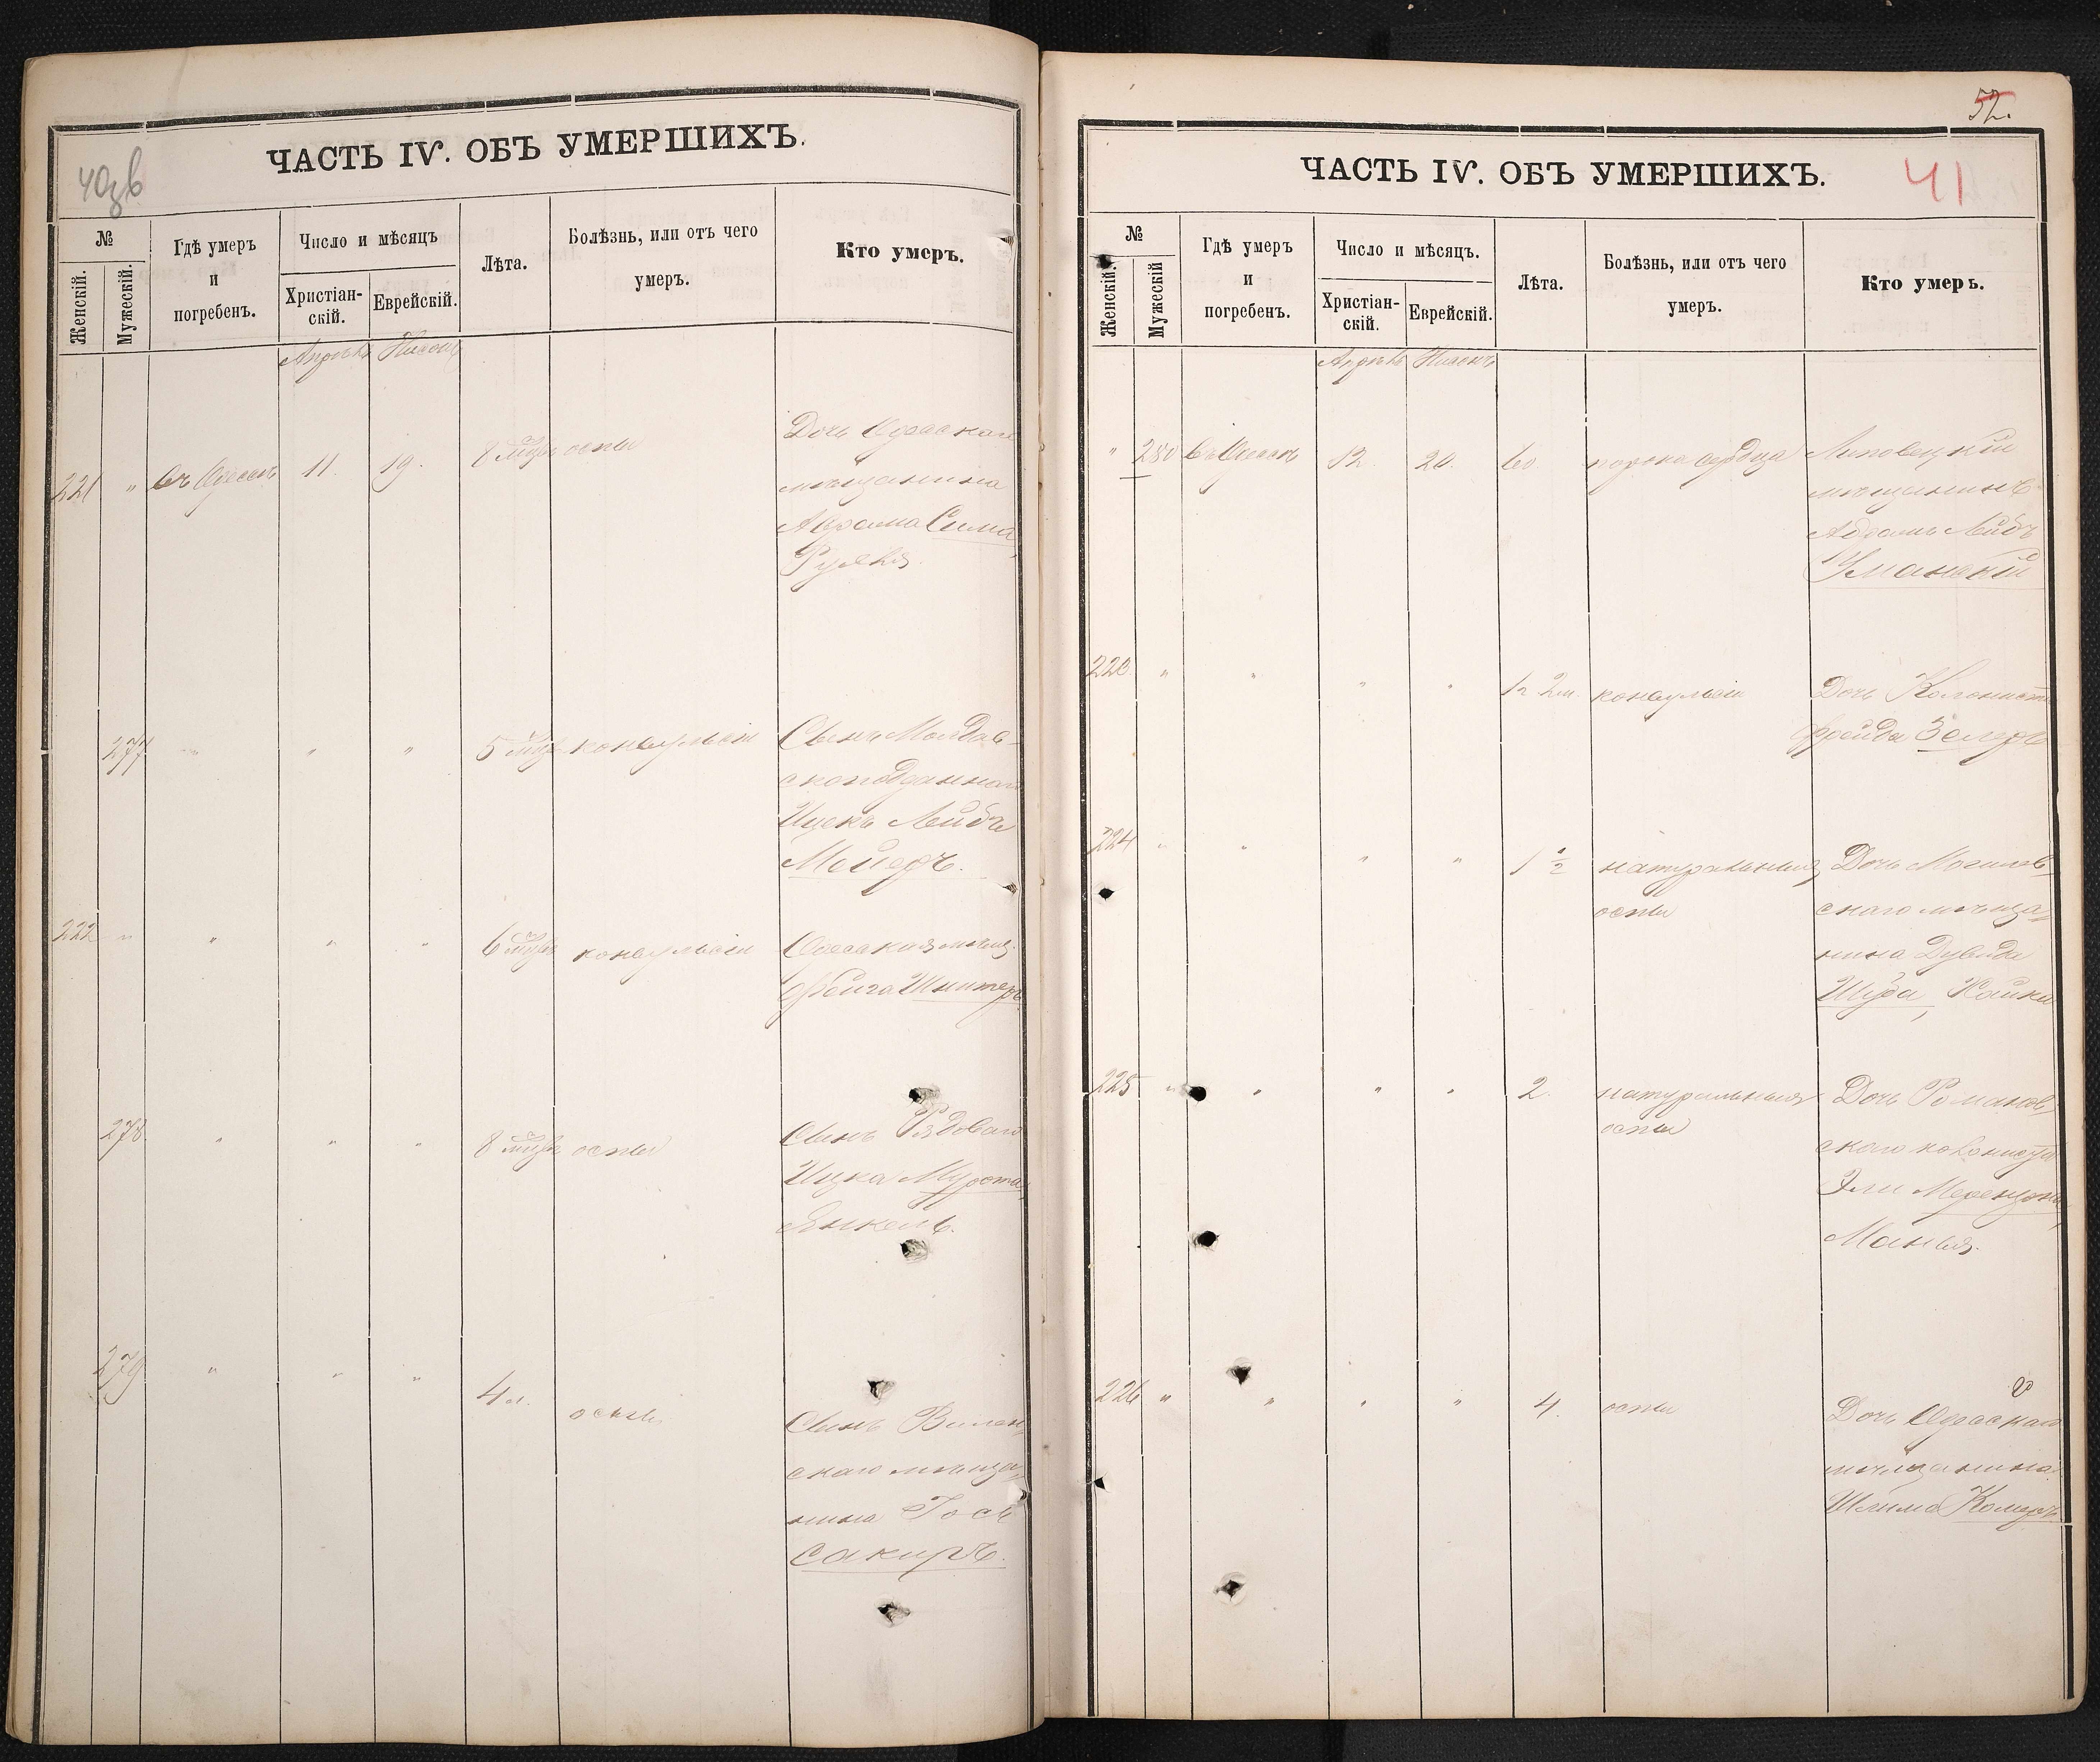 ЧАСТЬ IV. ОБЪ УМЕРШИХЪ.
№
Женскій.
Мужескій.
Гдѣ умеръ
и
погребенъ.
Число и мѣсяцъ
Христіан-
скій.
Еврейскій.
Лѣта.
Болѣзнь, или отъ чего
умеръ.
Кто умеръ.
Апрѣль Нисонъ
221 " въ Одессѣ 11. 19. 8 мѣс оспы
Дочь Одесскаго
мѣщанина
Аврама Сима,
Рухля
277 " " " 5 мѣс конвульсіи
Сынъ Молдав-
скоподданнаго
Ицекъ Лейбъ
Мейеръ.
222 " " " " 6 мѣс конвульсіи
Одесская мѣщ.
Фейга Шнитеръ
278 " " " 8 мѣс оспы
Сынъ Рядоваго
Ицка
Янкель.
279 " " " 4 л. оспы
Сынъ Вилен-
скаго мѣща-
нина Іось
Сакиръ.
52.
ЧАСТЬ IV. ОБЪ УМЕРШИХЪ.
41
№
Женскій.
Мужескій
Гдѣ умеръ
и
погребенъ.
Число и мѣсяцъ.
Христіан-
скій.
Еврейскій.
Лѣта.
Болѣзнь, или отъ чего
умеръ.
Кто умеръ.
Апрѣль Нисонъ
" 280 Въ Одессѣ 12. 20. 60 порока сердца
Липовецкій
мѣщанинъ
Абрамъ Лейбъ
Уманскій
223. " " " " 1 2 м. конвульсіи
Дочь Колониста
Фрейда Зелеръ
224 " " " " 1 1/2 натуральныя
оспы
Дочь Могилев-
скаго мѣща-
нина Дувида
Шуба, Хайка
225 " " " " 2. натуральныя
оспы
Дочь Романов-
скаго колониста
Эли
Манья.
226 " " " " 4. оспы
Дочь Одесскаго
мѣщанина
Шлима Комаръ